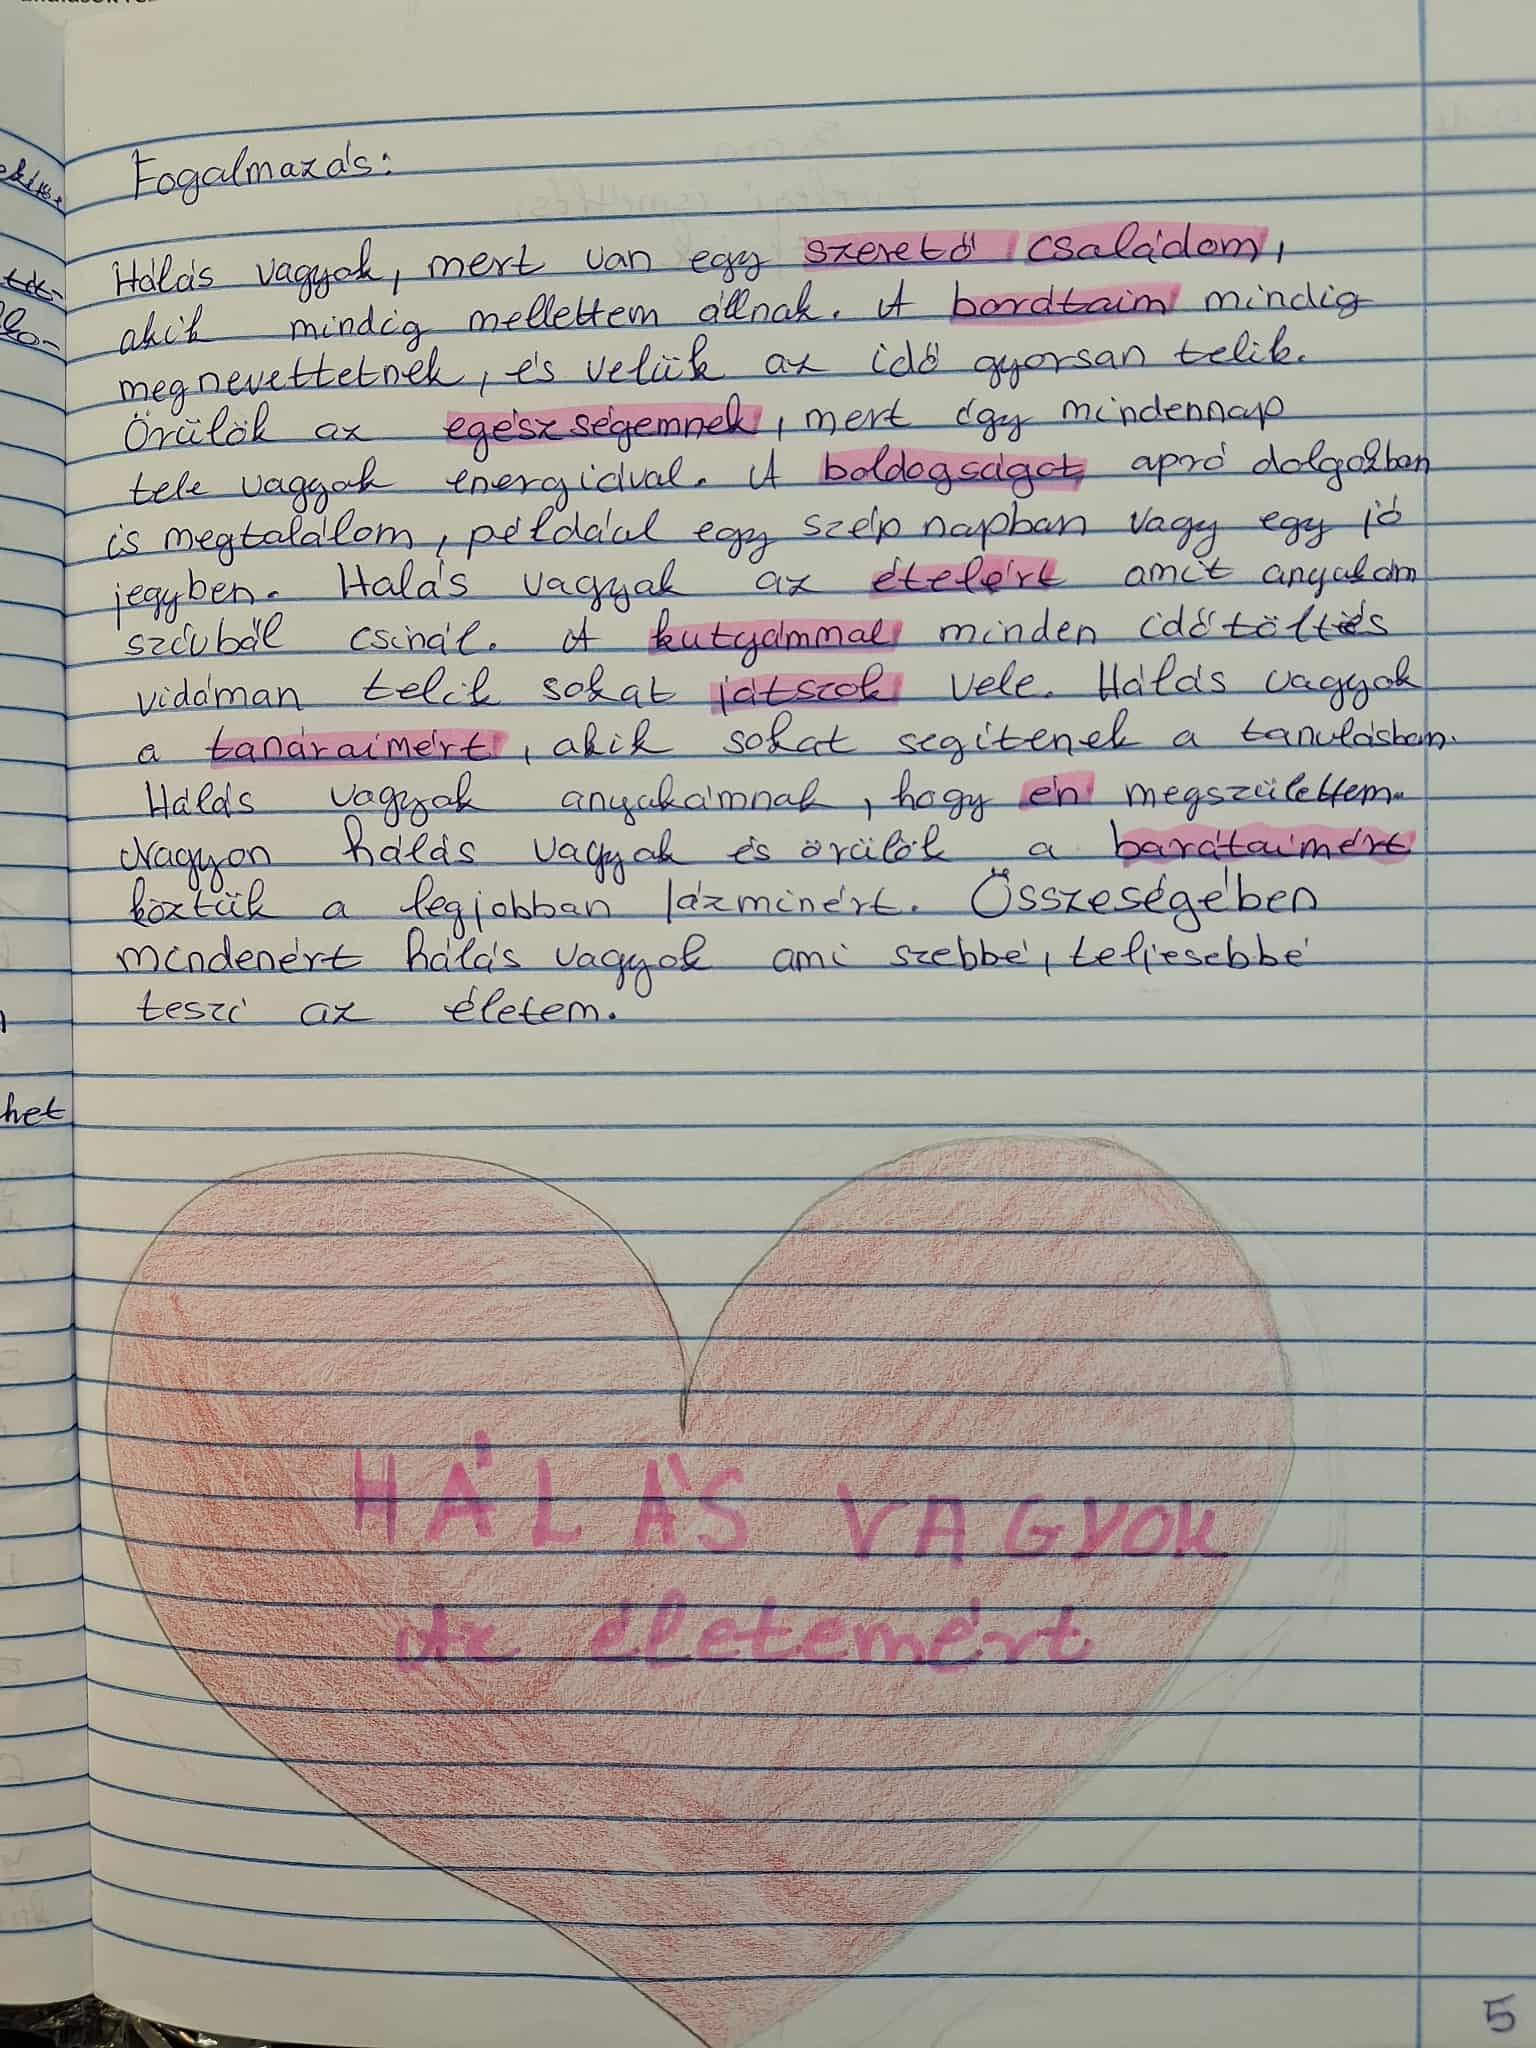 Fogalmazás:
Hálás vagyok, mert van egy szerető családom,
akik mindig mellettem állnak. A bardtaim mindig
megnevettetnek, és velük az idő gyorsan telik.
Örülök az egészségemnek, mert így mindennap
tele vagyok energiával. A boldogságot apró dolgokban
is megtalálom, például egy szép napban vagy egy jó
jegyben. Halás vagyok az ételért amit anyukám
szívból csinál. A kutyámmal minden időtöltés
vidáman telik sokat játszok vele. Hálás vagyok
a tanáraimért, akik sokat segítenek a tanulásban.
Hálás vagyok anyukámnak, hogy én megszülettem.
Nagyon hálás vagyok és örülök a barátaimért
köztük a legjobban Jázminért. Összeségében
mindenért hálás vagyok ami szebbé, teljesebbé
teszi az életem.
HÁLÁS VAGYOK
Az életemért
5
het